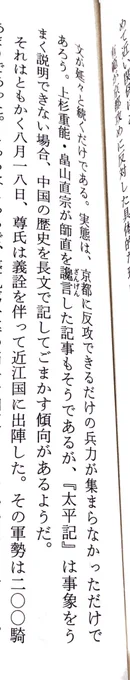 が京都攻めに反対した具体的
文が延々と続くだけである。実態は、京都に反攻できるだけの兵力が集まらなかっただけで
あろう。上杉重能・畠山直宗が師直を讒言ざんげんした記事もそうであるが、『太平記』は事象をう
まく説明できない場合、中国の歴史を長文で記してごまかす傾向があるようだ。
それはともかく八月一八日、尊氏は義詮を伴って近江国に出陣した。その軍勢は二〇〇騎